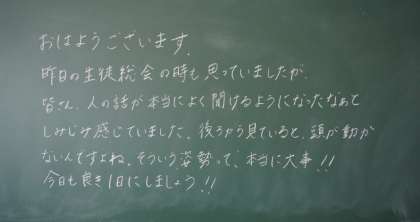 おはようございます。
昨日の生徒総会の時も思っていましたが、
皆さん、人の話が本当によく聞けるようになったなぁと
しみじみ感じていました。後ろから見ていると、頭が動か
ないんですよね。そういう姿勢って、本当に大事!!
今日も良き1日にしましょう!!